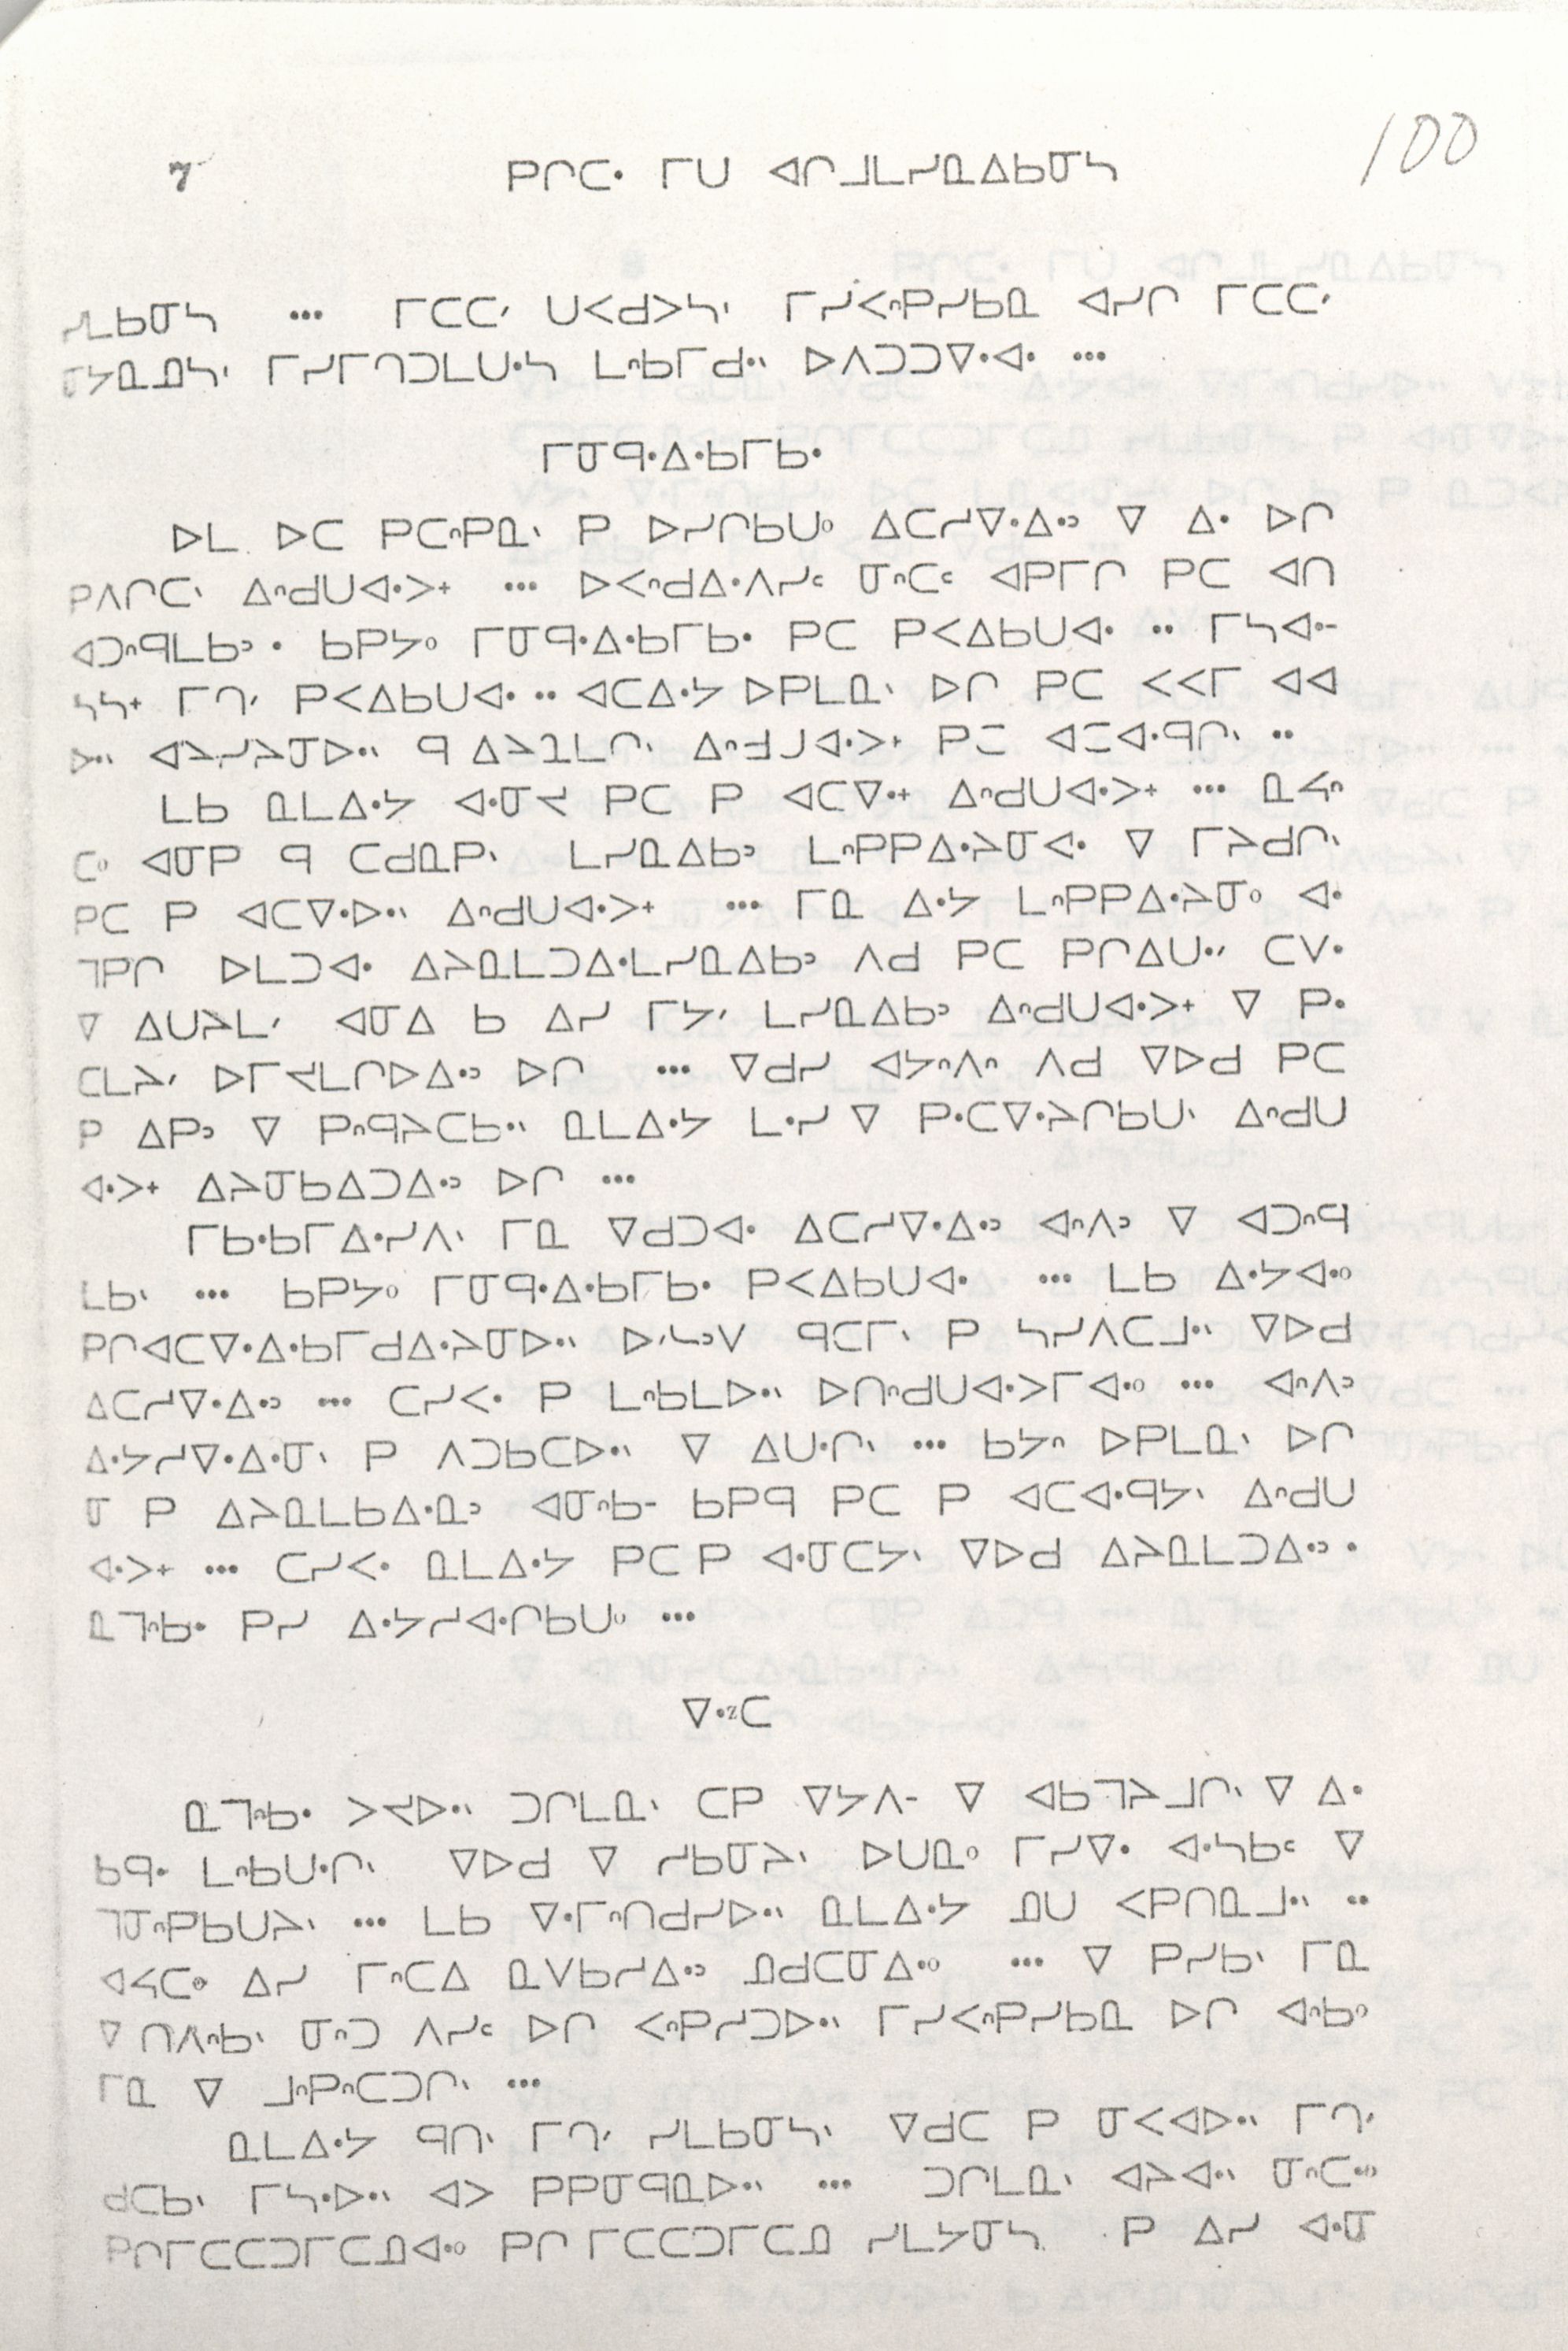 7 ᑭᒋᑕᐧ ᒥᑌ ᐊᒋᒧᒪᓯᓇᐃᑲᓂᓴ 100
ᓯᒪᑲᓂᓴ ••• ᒥᑕᑕᐟ ᑌᐸᑯᐳᓴᐠ ᒥᓯᐸᐢᑭᓯᑲᓇ ᐊᓯᒋ ᒥᑕᑕᐟ
ᒥᓯᒥᑎᑐᒪᑌᐧᓴ ᒪᐢᑲᒥᑯᐧᐠ ᐅᐱᑐᑐᐁᐧᐊᐧ •••
ᒥᓂᑫᐧᐃᐧᑲᒥᑲᐧ
ᐅᒪ ᐅᑕ ᑭᑕᐢᑭᓇᐠ ᑭ ᐅᓯᒋᑲᑌᐤ ᐃᑕᓯᐁᐧᐃᐧᐣ ᐁ ᐃᐧ ᐅᒋ
ᑭᐱᒋᑕᐠ ᐃᐢᑯᑌᐊᐧᐳᐩ ••• ᐅᐸᐢᑯᐃᐧᐱᓯᒼ ᓂᐢᑕᒼ ᐊᑭᒥᒋ ᑭᑕ ᐊᑎ
ᐊᑐᐢᑫᒪᑲᐣ • ᑲᑭᔭᐤ ᒥᓂᑫᐧᐃᐧᑲᒥᑲᐧ ᑭᑕ ᑭᐸᐃᑲᑌᐊᐧ •• ᒥᓴᐊᐧ-
ᓴᓴᐩ ᒥᒉᐟ ᑭᐸᐃᑲᑌᐊᐧ •• ᐊᑕᐃᐧᔭ ᐅᑭᒪᓇᐠ ᐅᒋ ᑭᑕ ᐸᐸᒥ ᐊᐊ
ᒪᑲ ᓇᒪᐃᐧᔭ ᐊᐧᓂᔪ ᑭᑕ ᑭ ᐊᑕᐁᐧᐩ ᐃᐢᑯᑌᐊᐧᐳᐩ •••
ᐊᓂᑭ ᑫ ᑕᑯᓇᑭᐠ ᒪᓯᓇᐃᑲᐣ ᒪᐢᑭᑭᐃᐧᔨᓂᐊᐧ ᐁ ᒥᔨᑯᒋᐠ
ᑭᑕ ᑭ ᐊᑕᐁᐧᐅᐧᐠ ᐃᐢᑯᑌᐊᐧᐳᐩ ••• ᒥᓇ ᐃᐧᔭ ᒪᐢᑭᑭᐃᐧᔨᓂᐤ ᐊᐧ
ᒉᑭᒋ ᐅᒪᑐᐊᐧ ᐃᔨᓇᒪᑐᐃᐧᒪᓯᓇᐃᑲᐣ ᐱᑯ ᑭᑕ ᑭᒋᐃᑌᐧᐟ ᑕᐯᐧ
ᐁ ᐃᑌᔨᒪᐟ ᐊᓂᐃ ᑲ ᐃᓯ ᒥᔭᐟ ᒪᓯᓇᐃᑲᐣ ᐃᐢᑯᑌᐊᐧᐳᐩ ᐁ ᑭᐧ
ᑕᒪᔨᐟ ᐅᒥᔪᒪᒋᐅᐃᐧᐣ ᐅᒋ ••• ᐁᑯᓯ ᐊᔭᐢᐱᐢ ᐱᑯ ᐁᐅᑯ ᑭᑕ
ᑭ ᐃᑭᐣ ᐁ ᑭᐢᑫᔨᑕᑲᐧᐠ ᓇᒪᐃᐧᔭ ᒪᐧᓯ ᐁ ᑭᐧᑕᐁᐧᔨᒋᑲᑌᐠ ᐃᐢᑯᑌ
ᐊᐧᐳᐩ ᐃᔨᓂᑲᐃᑐᐃᐧᐣ ᐅᒋ •••
ᒥᑲᐧᑲᒥᐃᐧᓯᐱᐠ ᒥᓇ ᐁᑯᑐᐊᐧ ᐃᑕᓯᐁᐧᐃᐧᐣ ᐊᐢᐱᐣ ᐁ ᐊᑐᐢᑫ
ᒪᑲᐠ ••• ᑲᑭᔭᐤ ᒥᓂᑫᐧᐃᐧᑲᒥᑲᐧ ᑭᐸᐃᑲᑌᐊᐧ ••• ᒪᑲ ᐃᐧᔭᐊᐧᐤ
ᑭᒋᐊᑕᐁᐧᐃᐧᑲᒥᑯᐃᐧᔨᓂᐅᐧᐠ ᐅᐟᓴᐣᐯ ᑫᑕᒥᐠ ᑭ ᓴᓯᐱᑕᒧᐧᐠ ᐁᐅᑯ
ᐃᑕᓯᐁᐧᐃᐧᐣ ••• ᑕᓯᐸᐧ ᑭ ᒪᐢᑲᒪᐅᐧᐠ ᐅᑎᐢᑯᑌᐊᐧᐳᒥᐊᐧᐤ ••• ᐊᐢᐱᐣ
ᐃᐧᔭᓯᐁᐧᐃᐧᓂᐠ ᑭ ᐱᑐᑲᑕᐅᐧᐠ ᐁ ᐃᑌᐧᒋᐠ ••• ᑲᔭᐢ ᐅᑭᒪᓇᐠ ᐅᒋ
ᓂ ᑭ ᐃᔨᓇᒪᑲᐃᐧᓇᐣ ᐊᓂᐢᑲ- ᑲᑭᑫ ᑭᑕ ᑭ ᐊᑕᐊᐧᑫᔭᐠ ᐃᐢᑯᑌ
ᐊᐧᐳᐩ ••• ᑕᓯᐸᐧ ᓇᒪᐃᐧᔭ ᑭᑕ ᑭ ᐊᐧᓂᑕᔭᐠ ᐁᐅᑯ ᐃᔨᓇᒪᑐᐃᐧᐣ •
ᓇᒉᐢᑲᐧ ᑭᓯ ᐃᐧᔭᓯᐊᐧᒋᑲᑌᐤ •••
ᐁᐧᶻᑕ
ᓇᒉᐢᑲᐧ ᐳᔪᐅᐧᐠ ᑐᒋᒪᓇᐠ ᑕᑭ ᐁᔭᐱ- ᐁ ᐊᑲᒉᔨᒧᒋᐠ ᐁ ᐃᐧ
ᑲᑫᐧ ᒪᐢᑲᑌᐧᒋᐠ ᐁᐅᑯ ᐁ ᓯᑲᓂᔨᐠ ᐅᑌᓇᐤ ᒥᓯᐁᐧ ᐊᐧᓴᑲᒼ ᐁ
ᒉᓂᐢᑭᑲᑌᔨᐠ ••• ᒪᑲ ᐁᐧᒥᐢᑎᑯᓯᐅᐧᐠ ᓇᒪᐃᐧᔭ ᓄᑌ ᐸᑭᑎᓇᒧᐧᐠ ••
ᐃᓯ ᒥᐢᑕᐃ ᓇᐯᑲᓯᐃᐧᐣ ᓄᑯᑕᓂᐃᐧᐤ ••• ᐁ ᑭᓯᑲᐠ ᒥᓇ
ᐁ ᑎᐱᐢᑲᐠ ᓂᐢᑐ ᐱᓯᒼ ᐅᒋ ᐸᐢᑭᓯᑐᐅᐧᐠ ᒥᓯᐸᐢᑭᓯᑲᓇ ᐅᒋ ᐊᐢᑲᐤ
ᒥᓇ ᐁ ᒧᐢᑭᐢᑕᑐᒋᐠ •••
ᓇᒪᐃᐧᔭ ᑫᒋᐠ ᒥᒉᐟ ᓯᒪᑲᓂᓴᐠ ᐁᑯᑕ ᑭ ᓂᐸᐊᐅᐧᐠ ᒥᒉᐟ
ᑯᑕᑲᐠ ᒥᓴᐧᐅᐧᐠ ᐊᐳ ᑭᑭᓂᑫᓇᐅᐧᐠ ••• ᑐᒋᒪᓇᐠ ᐊᔨᐊᐧᐠ ᓂᐢᑕᐧᐤ
ᑭᒋᒥᑕᑕᑐᒥᑕᓄᐊᐧᐤ ᑭᒋ ᒥᑕᑕᑐᒥᑕᓄ ᓯᒪᔭᓂᓴ ᑭ ᐃᓯ ᐊᐧᓂ